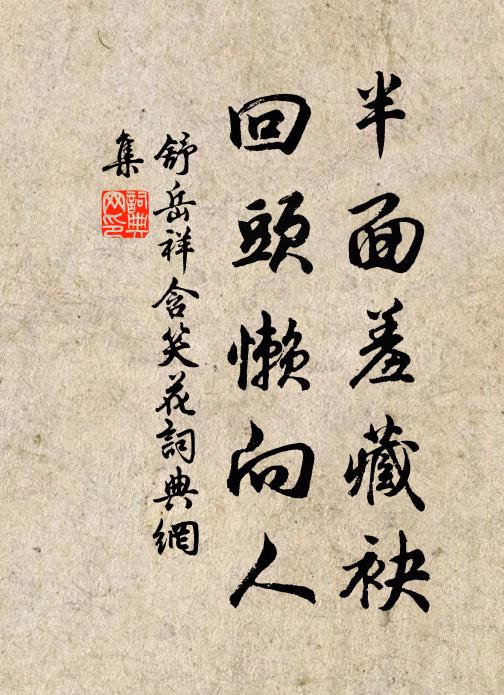 半面羞藏袂
回頭懶向人
舒岳祥含笑花詞典網
集
詞典
网印